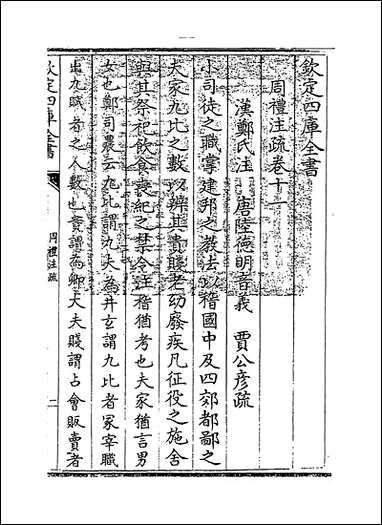 欽定四庫全書
周禮注疏卷十一
漢鄭氏注 唐陸德明音義 賈公彦疏
小司徒之職掌建邦之教法以稽國中及四郊都鄙之
夫家九比之數以辨其貴賤老幼廢疾凡征役之施舍
與其祭祀飲食喪紀之禁令注稽猶考也夫家猶言男
女也鄭司農云九比謂九夫為井玄謂九比者冢宰職
出九賦者之人數也貴謂為卿大夫賤謂占會販賣者
欽定四庫全書
周禮注疏